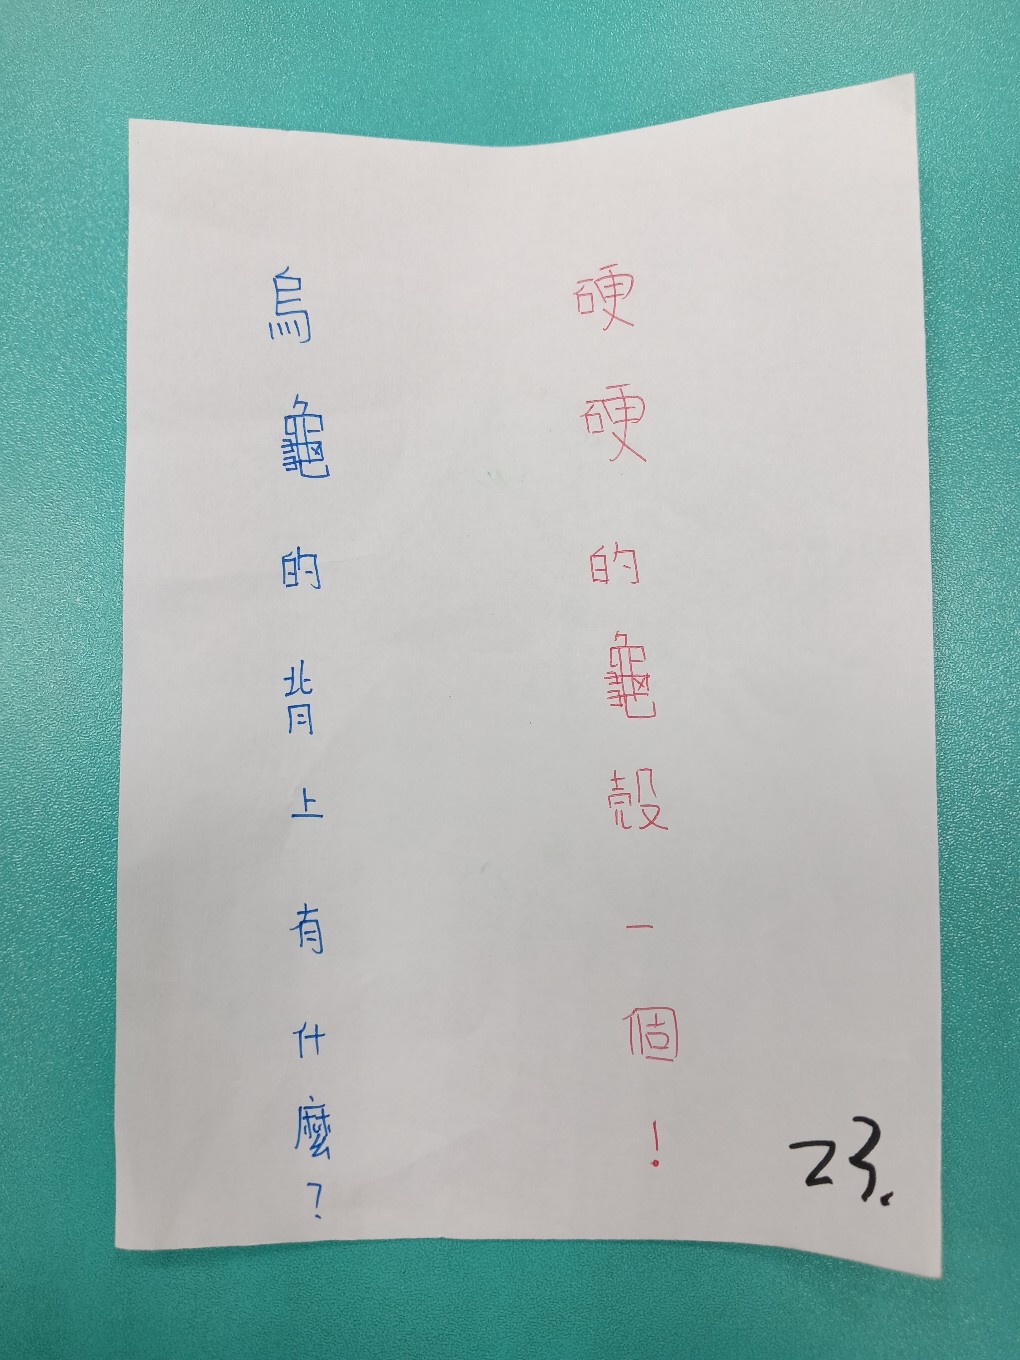 烏龜的背上有什麼?
硬硬的龜殼一個!
23.